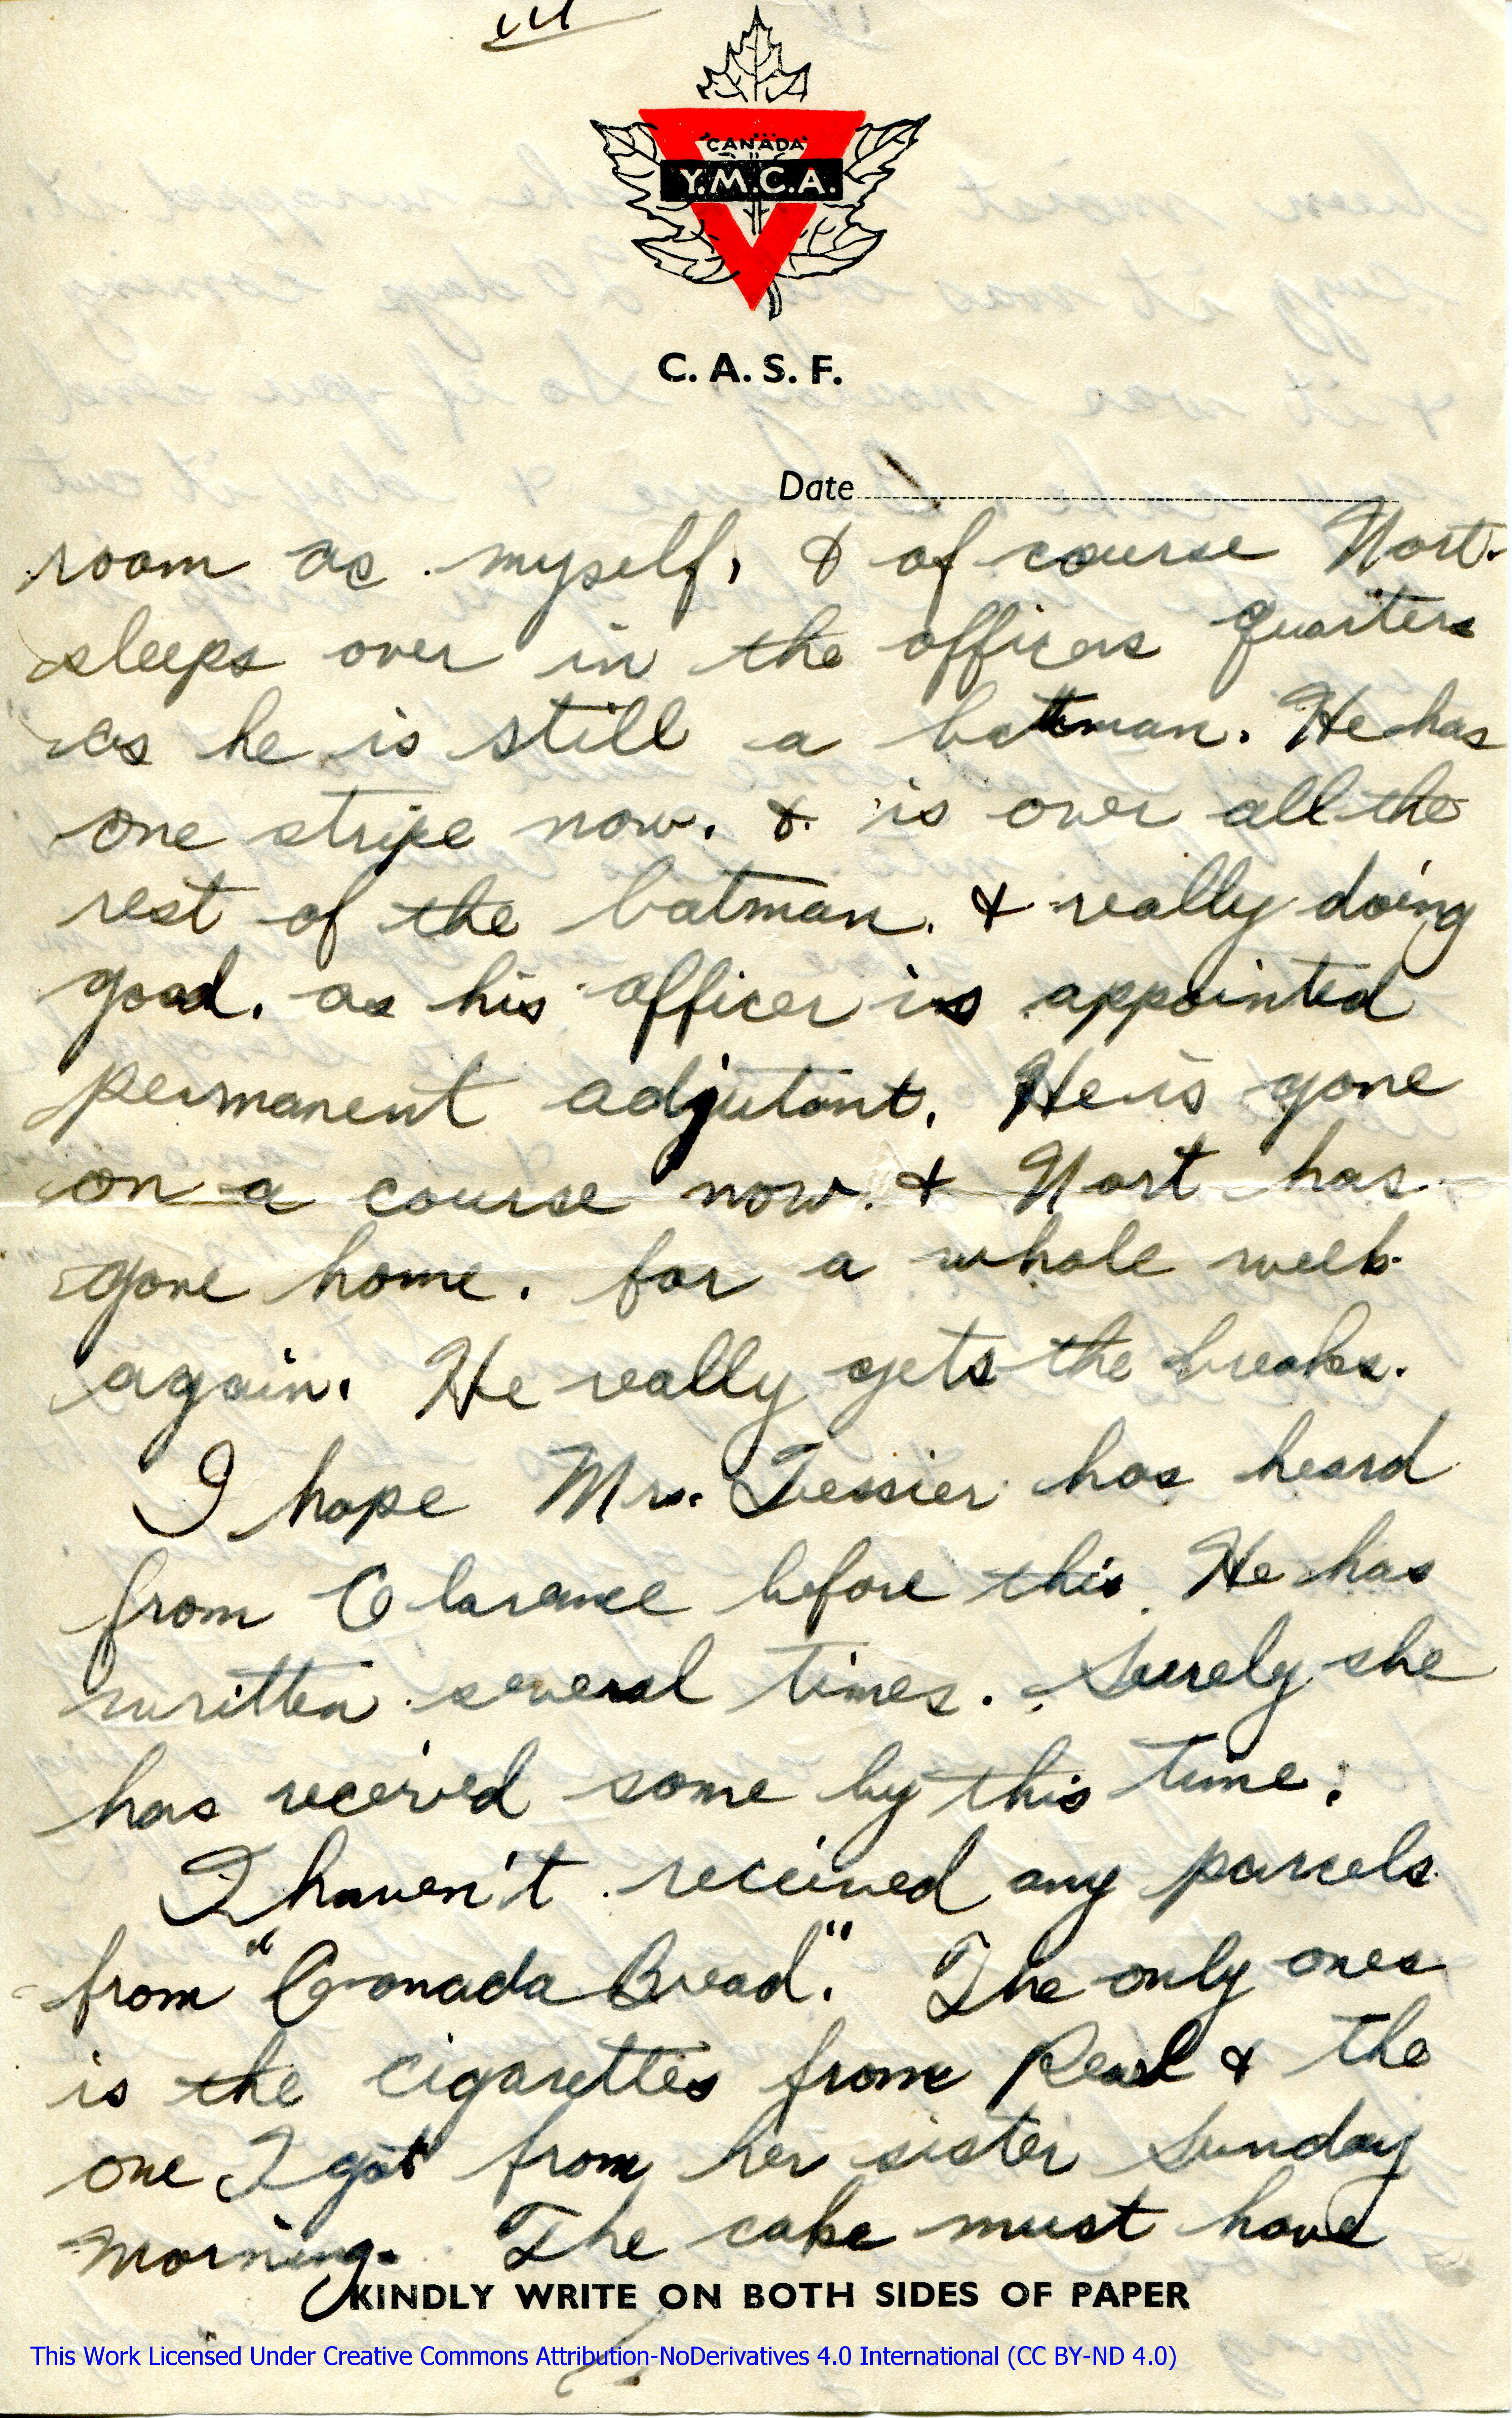 III
CANADA
Y.M.C.A.
C. A. S. F.
Date
room as myself, & of course Nort.
sleeps over in the officers quarters
as he is still a battman. He has
one stripe now. & is over all the
rest of the batman. & really doing
good. as his officer is appointed
permanent adjutant. He is gone
on a course now. & Nort has
gone home. for a whole week
again. He really gets the breaks.
I hope Mrs. Tessier has heard
from Clarence before this. He has
written several times. Surely she
has received some by this time.
I haven't received any parcels
from "Canada Bread." The only ones
is the cigarettes from Pearl & the
one I got from her sister Sunday
morning. The cake must have
KINDLY WRITE ON BOTH SIDES OF PAPER
This Work Licensed Under Creative Commons Attribution-NoDerivatives 4.0 International (CC BY-ND 4.0)